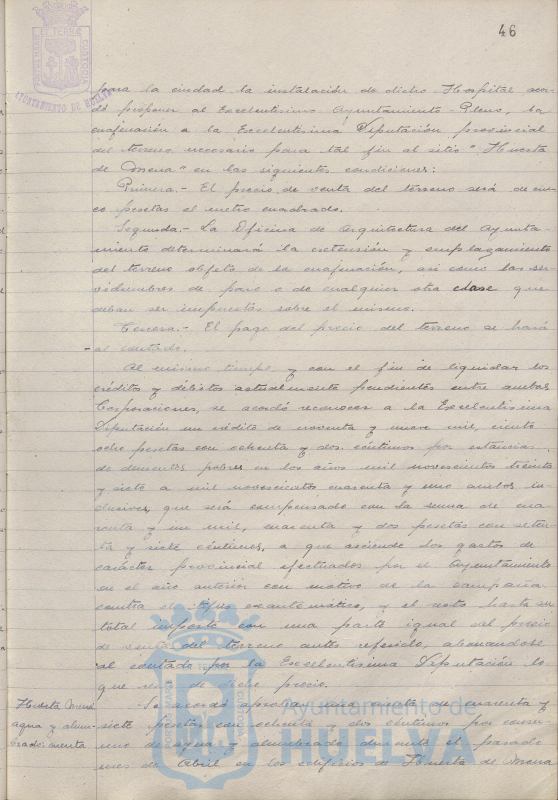 46
AYUNTAMIENTO DE HUELVA
para la ciudad la instalación de dicho Hospital acor-
dó proponer al Excelentísimo Ayuntamiento Pleno, la
enajenación a la Excelentísima Diputación provincial
del terreno necesario para tal fin al sitio "Huerta
de Mena" en las siguientes condiciones:
Primera.- El precio de venta del terreno será de cin-
co pesetas el metro cuadrado.
Segunda.- La Oficina de Arquitectura del Ayunta-
miento determinará la extensión y emplazamiento
del terreno objeto de la enajenación, así como las ser-
vidumbres de paso o de cualquier otra clase que
deban ser impuestas sobre el mismo.
Tercera.- El pago del precio del terreno se hará
al contado.
Al mismo tiempo y con el fin de liquidar los
créditos y débitos actualmente pendientes entre ambas
Corporaciones, se acordó reconocer a la Excelentísima
Diputación un crédito de noventa y nueve mil, ciento
ocho pesetas con ochenta y dos céntimos por estancias
de dementes pobres en los años mil novecientos treinta
y siete a mil novecientos cuarenta y uno ambos in-
clusives, que será compensado con la suma de cua-
renta y un mil, cuarenta y dos pesetas con seten-
ta y siete céntimos, a que asciende los gastos de
carácter provincial efectuados por el Ayuntamiento
en el año anterior con motivo de la campaña
contra el tifus exantemático, y el resto hasta su
total importe con una parte igual del precio
de venta del terreno antes referido, abonándose
al contado por la Excelentísima Diputación lo
que de dicho precio.
Huerta Mena
agua y alum-
brado: cuenta
Se acordó aprobar una cuenta de cuarenta y
siete pesetas con ochenta y dos céntimos por consu-
mo de agua y alumbrado durante el pasado
mes de Abril en los edificios de Huerta de Mena
Ayuntamiento de
HUELVA